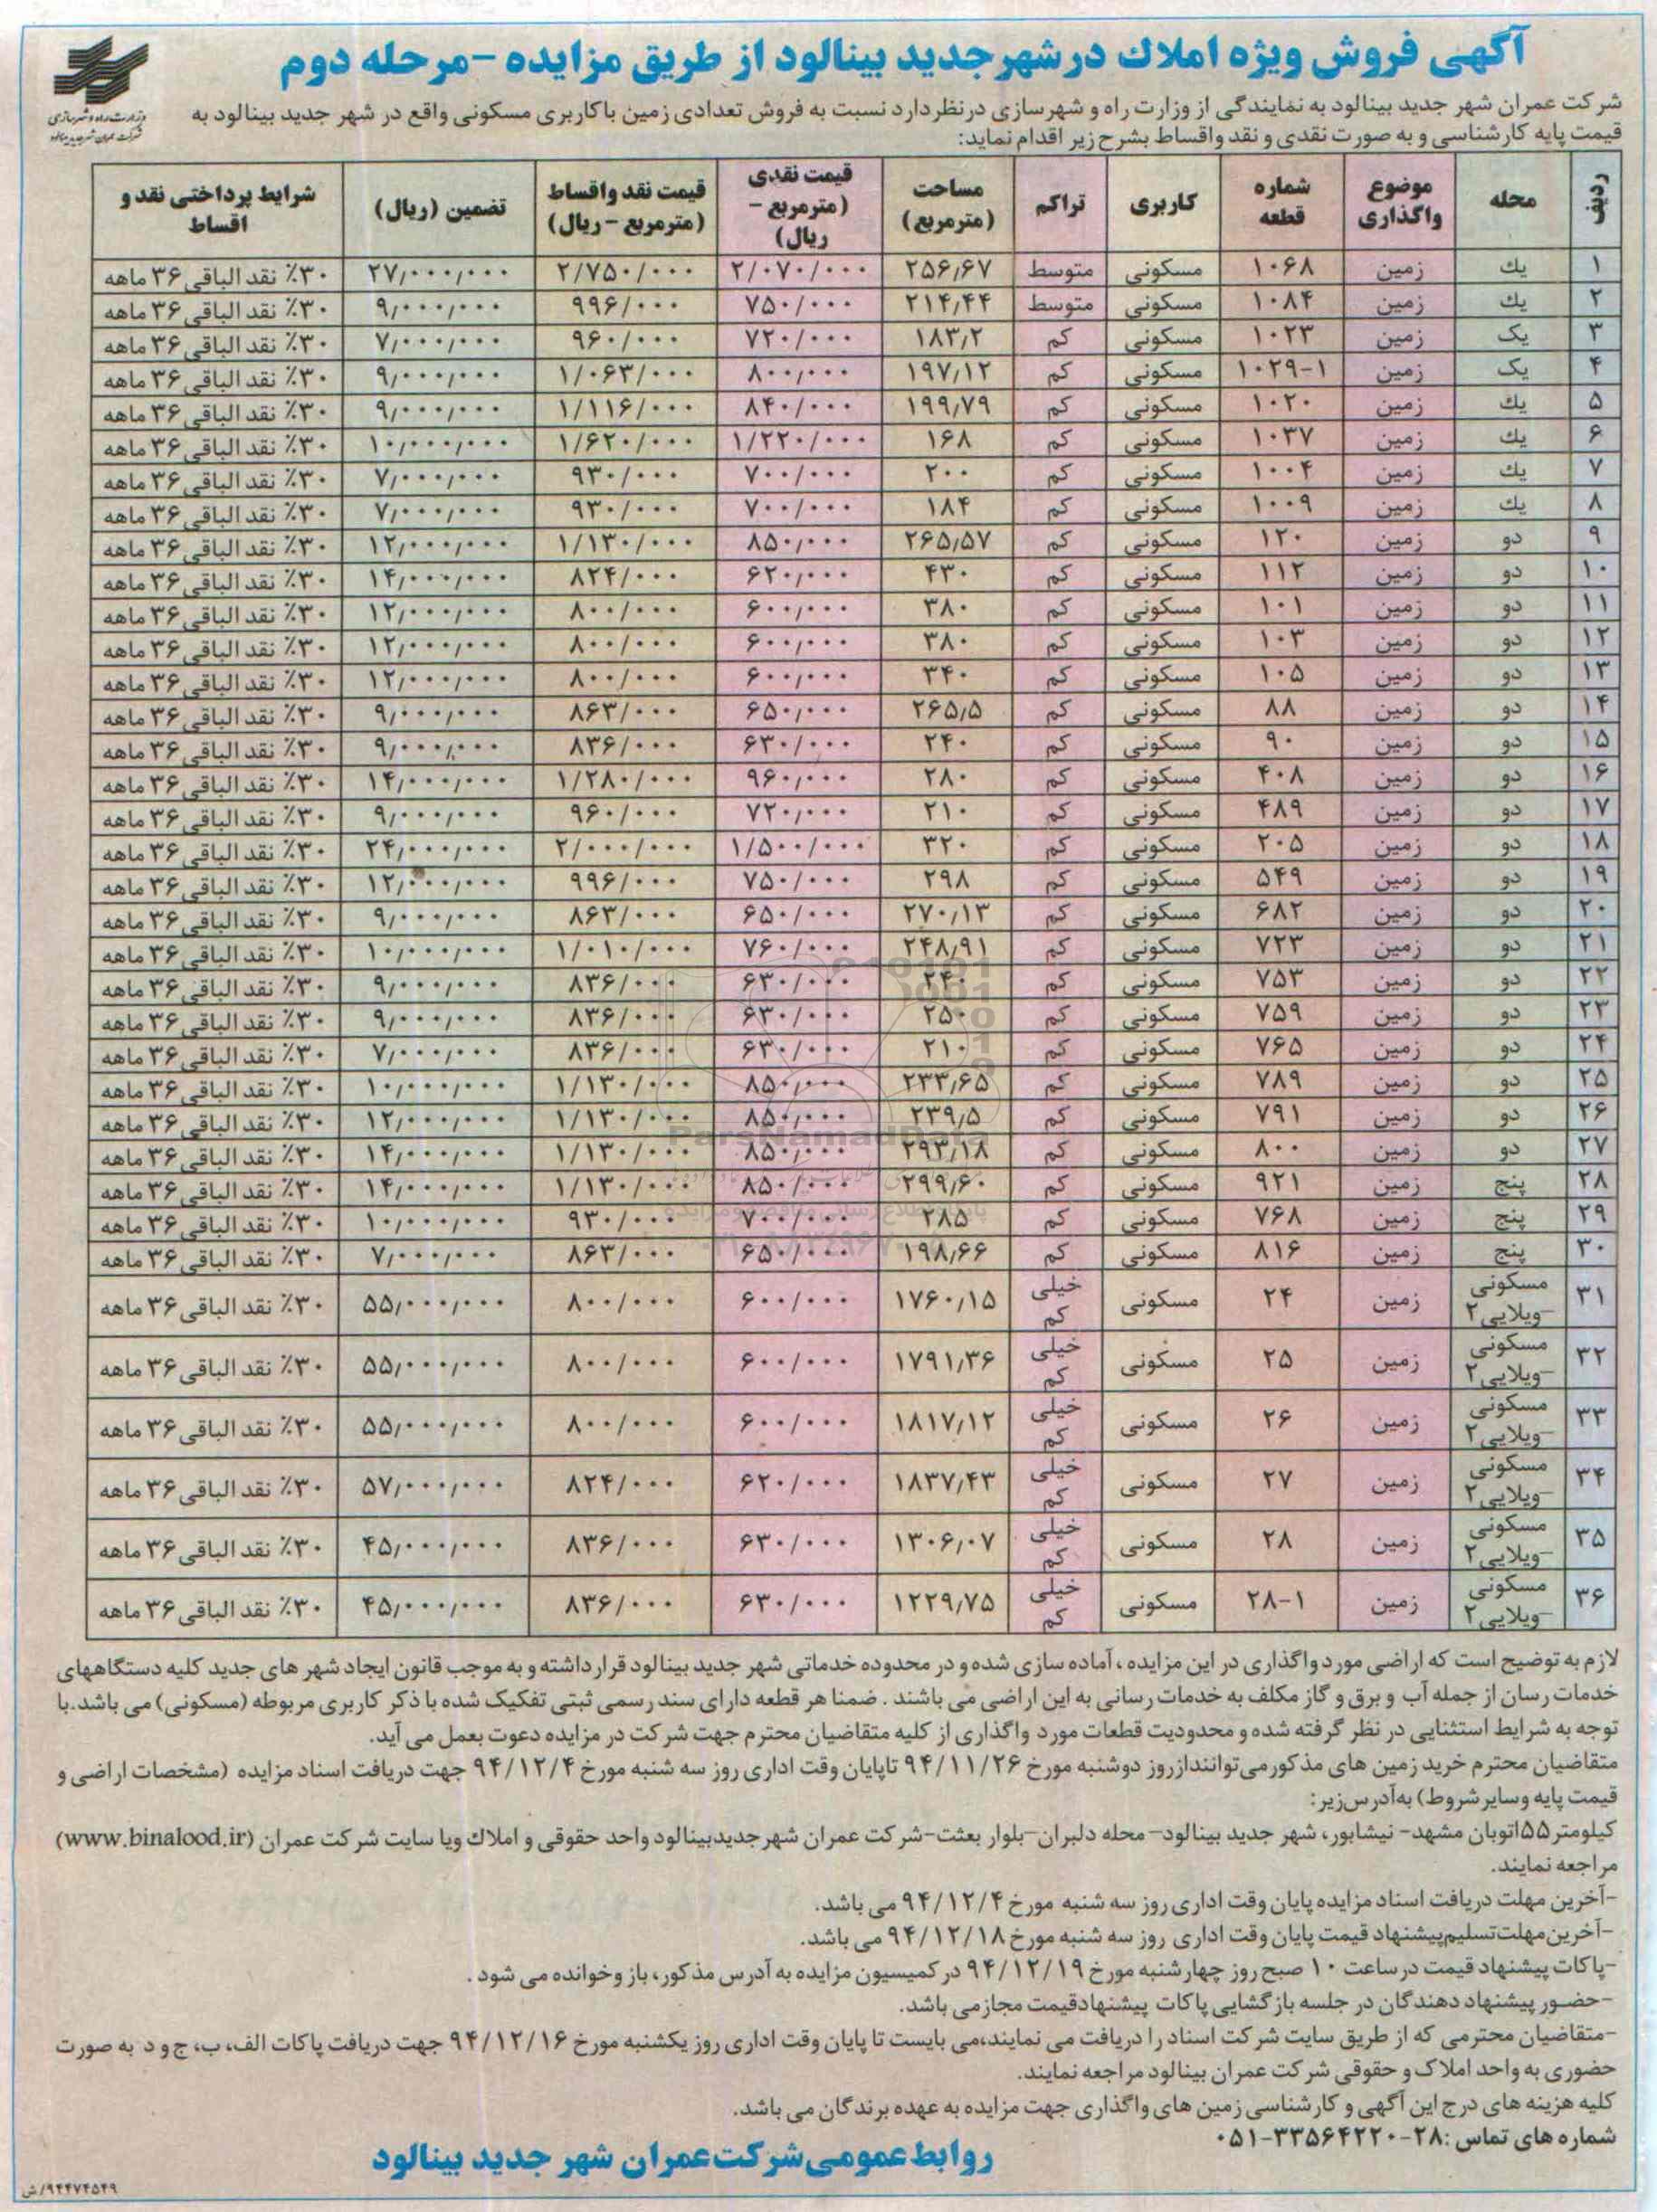 آگهی فروش ویژه املاك در شهر جدید بینالود از طریق مزایده -مرحله دوم
وزارت راه و شهرسازی
شرکت عمران شهر جدید بینالود
شرکت عمران شهر جدید بینالود به نمایندگی از وزارت راه و شهرسازی درنظردارد نسبت به فروش تعدادی زمین با کاربری مسکونی واقع در شهر جدید بینالود به
قیمت پایه کارشناسی و به صورت نقدی و نقد واقساط بشرح زیر اقدام نماید:
ردیف محله موضوع واگذاری شماره قطعه کاربری تراکم مساحت (مترمربع) قیمت نقدی (مترمربع - ریال) قیمت نقد واقساط (مترمربع -ریال) تضمین (ریال) شرایط پرداختی نقد و اقساط
۱ یك زمین ۱۰۶۸ مسکونی متوسط ۲۵۶٫۶۷ ۲/۰۷۰/۰۰۰ ۲/۷۵۰/۰۰۰ ۲۷٫۰۰۰٫۰۰۰ ۳۰٪ نقد الباقی ۳۶ ماهه
۲ یك زمین ۱۰۸۴ مسکونی متوسط ۲۱۴٫۴۴ ۷۵۰/۰۰۰ ۹۹۶/۰۰۰ ۹٫۰۰۰٫۰۰۰ ۳۰٪ نقد الباقی ۳۶ ماهه
۳ یک زمین ۱۰۲۳ مسکونی کم ۱۸۳٫۲ ۷۲۰/۰۰۰ ۹۶۰/۰۰۰ ۷٫۰۰۰٫۰۰۰ ۳۰٪ نقد الباقی ۳۶ ماهه
۴ یک زمین ۱۰۲۹-۱ مسکونی کم ۱۹۷٫۱۲ ۸۰۰٫۰۰۰ ۱/۰۶۳/۰۰۰ ۹٫۰۰۰٫۰۰۰ ۳۰٪ نقد الباقی ۳۶ ماهه
۵ یك زمین ۱۰۲۰ مسکونی کم ۱۹۹٫۷۹ ۸۴۰/۰۰۰ ۱/۱۱۶/۰۰۰ ۹٫۰۰۰٫۰۰۰ ۳۰٪ نقد الباقی ۳۶ ماهه
۶ یك زمین ۱۰۳۷ مسکونی کم ۱۶۸ ۱/۲۲۰/۰۰۰ ۱/۶۲۰/۰۰۰ ۱۰٫۰۰۰٫۰۰۰ ۳۰٪ نقد الباقی ۳۶ ماهه
۷ یك زمین ۱۰۰۴ مسکونی کم ۲۰۰ ۷۰۰/۰۰۰ ۹۳۰/۰۰۰ ۷٫۰۰۰٫۰۰۰ ۳۰٪ نقد الباقی ۳۶ ماهه
۸ یك زمین ۱۰۰۹ مسکونی کم ۱۸۴ ۷۰۰/۰۰۰ ۹۳۰/۰۰۰ ۷٫۰۰۰٫۰۰۰ ۳۰٪ نقد الباقی ۳۶ ماهه
۹ دو زمین ۱۲۰ مسکونی کم ۲۶۵٫۵۷ ۸۵۰٫۰۰۰ ۱/۱۳۰/۰۰۰ ۱۲٫۰۰۰٫۰۰۰ ۳۰٪ نقد الباقی ۳۶ ماهه
۱۰ دو زمین ۱۱۲ مسکونی کم ۴۳۰ ۶۲۰٫۰۰۰ ۸۲۴/۰۰۰ ۱۴٫۰۰۰٫۰۰۰ ۳۰٪ نقد الباقی ۳۶ ماهه
۱۱ دو زمین ۱۰۱ مسکونی کم ۳۸۰ ۶۰۰٫۰۰۰ ۸۰۰/۰۰۰ ۱۲٫۰۰۰٫۰۰۰ ۳۰٪ نقد الباقی ۳۶ ماهه
۱۲ دو زمین ۱۰۳ مسکونی کم ۳۸۰ ۶۰۰٫۰۰۰ ۸۰۰/۰۰۰ ۱۲٫۰۰۰٫۰۰۰ ۳۰٪ نقد الباقی ۳۶ ماهه
۱۳ دو زمین ۱۰۵ مسکونی کم ۳۴۰ ۶۰۰٫۰۰۰ ۸۰۰/۰۰۰ ۱۲٫۰۰۰٫۰۰۰ ۳۰٪ نقد الباقی ۳۶ ماهه
۱۴ دو زمین ۸۸ مسکونی کم ۲۶۵٫۵ ۶۵۰٫۰۰۰ ۸۶۳/۰۰۰ ۹٫۰۰۰٫۰۰۰ ۳۰٪ نقد الباقی ۳۶ ماهه
۱۵ دو زمین ۹۰ مسکونی کم ۲۴۰ ۶۳۰/۰۰۰ ۸۳۶/۰۰۰ ۹٫۰۰۰٫۰۰۰ ۳۰٪ نقد الباقی ۳۶ ماهه
۱۶ دو زمین ۴۰۸ مسکونی کم ۲۸۰ ۹۶۰٫۰۰۰ ۱/۲۸۰/۰۰۰ ۱۴٫۰۰۰٫۰۰۰ ۳۰٪ نقد الباقی ۳۶ ماهه
۱۷ دو زمین ۴۸۹ مسکونی کم ۲۱۰ ۷۲۰٫۰۰۰ ۹۶۰/۰۰۰ ۹٫۰۰۰٫۰۰۰ ۳۰٪ نقد الباقی ۳۶ ماهه
۱۸ دو زمین ۲۰۵ مسکونی کم ۳۲۰ ۱/۵۰۰/۰۰۰ ۲/۰۰۰/۰۰۰ ۲۴٫۰۰۰٫۰۰۰ ۳۰٪ نقد الباقی ۳۶ ماهه
۱۹ دو زمین ۵۴۹ مسکونی کم ۲۹۸ ۷۵۰/۰۰۰ ۹۹۶/۰۰۰ ۱۲٫۰۰۰٫۰۰۰ ۳۰٪ نقد الباقی ۳۶ ماهه
۲۰ دو زمین ۶۸۲ مسکونی کم ۲۷۰٫۱۳ ۶۵۰/۰۰۰ ۸۶۳/۰۰۰ ۹٫۰۰۰٫۰۰۰ ۳۰٪ نقد الباقی ۳۶ ماهه
۲۱ دو زمین ۷۲۳ مسکونی کم ۲۴۸٫۹۱ ۷۶۰/۰۰۰ ۱/۰۱۰/۰۰۰ ۱۰٫۰۰۰٫۰۰۰ ۳۰٪ نقد الباقی ۳۶ ماهه
۲۲ دو زمین ۷۵۳ مسکونی کم ۲۴۰ ۶۳۰/۰۰۰ ۸۳۶/۰۰۰ ۹٫۰۰۰٫۰۰۰ ۳۰٪ نقد الباقی ۳۶ ماهه
۲۳ دو زمین ۷۵۹ مسکونی کم ۲۵۰ ۶۳۰/۰۰۰ ۸۳۶/۰۰۰ ۹٫۰۰۰٫۰۰۰ ۳۰٪ نقد الباقی ۳۶ ماهه
۲۴ دو زمین ۷۶۵ مسکونی کم ۲۱۰ ۶۳۰/۰۰۰ ۸۳۶/۰۰۰ ۷٫۰۰۰٫۰۰۰ ۳۰٪ نقد الباقی ۳۶ ماهه
۲۵ دو زمین ۷۸۹ مسکونی کم ۲۳۳٫۶۵ ۸۵۰٫۰۰۰ ۱/۱۳۰/۰۰۰ ۱۰٫۰۰۰٫۰۰۰ ۳۰٪ نقد الباقی ۳۶ ماهه
۲۶ دو زمین ۷۹۱ مسکونی کم ۲۳۹٫۵ ۸۵۰٫۰۰۰ ۱/۱۳۰/۰۰۰ ۱۲٫۰۰۰٫۰۰۰ ۳۰٪ نقد الباقی ۳۶ ماهه
۲۷ دو زمین ۸۰۰ مسکونی کم ۲۹۳٫۱۸ ۸۵۰٫۰۰۰ ۱/۱۳۰/۰۰۰ ۱۴٫۰۰۰٫۰۰۰ ۳۰٪ نقد الباقی ۳۶ ماهه
۲۸ پنج زمین ۹۲۱ مسکونی کم ۲۹۹٫۶۰ ۸۵۰/۰۰۰ ۱/۱۳۰/۰۰۰ ۱۴٫۰۰۰٫۰۰۰ ۳۰٪ نقد الباقی ۳۶ ماهه
۲۹ پنج زمین ۷۶۸ مسکونی کم ۲۸۵ ۷۰۰/۰۰۰ ۹۳۰/۰۰۰ ۱۰٫۰۰۰٫۰۰۰ ۳۰٪ نقد الباقی ۳۶ ماهه
۳۰ پنج زمین ۸۱۶ مسکونی کم ۱۹۸٫۶۶ ۶۵۰/۰۰۰ ۸۶۳/۰۰۰ ۷٫۰۰۰٫۰۰۰ ۳۰٪ نقد الباقی ۳۶ ماهه
۳۱ مسکونی -ویلایی ۲ زمین ۲۴ مسکونی خیلی کم ۱۷۶۰٫۱۵ ۶۰۰/۰۰۰ ۸۰۰/۰۰۰ ۵۵٫۰۰۰٫۰۰۰ ۳۰٪ نقد الباقی ۳۶ ماهه
۳۲ مسکونی -ویلایی ۲ زمین ۲۵ مسکونی خیلی کم ۱۷۹۱٫۳۶ ۶۰۰/۰۰۰ ۸۰۰/۰۰۰ ۵۵٫۰۰۰٫۰۰۰ ۳۰٪ نقد الباقی ۳۶ ماهه
۳۳ مسکونی -ویلایی ۲ زمین ۲۶ مسکونی خیلی کم ۱۸۱۷٫۱۲ ۶۰۰/۰۰۰ ۸۰۰/۰۰۰ ۵۵٫۰۰۰٫۰۰۰ ۳۰٪ نقد الباقی ۳۶ ماهه
۳۴ مسکونی -ویلایی ۲ زمین ۲۷ مسکونی خیلی کم ۱۸۳۷٫۴۳ ۶۲۰/۰۰۰ ۸۲۴/۰۰۰ ۵۷٫۰۰۰٫۰۰۰ ۳۰٪ نقد الباقی ۳۶ ماهه
۳۵ مسکونی -ویلایی ۲ زمین ۲۸ مسکونی خیلی کم ۱۳۰۶٫۰۷ ۶۳۰/۰۰۰ ۸۳۶/۰۰۰ ۴۵٫۰۰۰٫۰۰۰ ۳۰٪ نقد الباقی ۳۶ ماهه
۳۶ مسکونی -ویلایی ۲ زمین ۲۸-۱ مسکونی خیلی کم ۱۲۲۹٫۷۵ ۶۳۰/۰۰۰ ۸۳۶/۰۰۰ ۴۵٫۰۰۰٫۰۰۰ ۳۰٪ نقد الباقی ۳۶ ماهه
ParsNamadData
لازم به توضیح است که اراضی مورد واگذاری در این مزایده ، آماده سازی شده و در محدوده خدماتی شهر جدید بینالود قرار داشته و به موجب قانون ایجاد شهر های جدید کلیه دستگاههای
خدمات رسان از جمله آب و برق و گاز مکلف به خدمات رسانی به این اراضی می باشند . ضمنا هر قطعه دارای سند رسمی ثبتی تفکیک شده با ذکر کاربری مربوطه (مسکونی) می باشد.با
توجه به شرایط استثنایی در نظر گرفته شده و محدودیت قطعات مورد واگذاری از کلیه متقاضیان محترم جهت شرکت در مزایده دعوت بعمل می آید.
متقاضیان محترم خرید زمین های مذکورمی‌تواننداز روز دوشنبه مورخ ۹۴/۱۱/۲۶ تاپایان وقت اداری روز سه شنبه مورخ ۹۴/۱۲/۴ جهت دریافت اسناد مزایده (مشخصات اراضی و
قیمت پایه وسایرشروط) به‌آدرس‌زیر:
کیلومتر۵۵اتوبان مشهد- نیشابور، شهر جدید بینالود- محله دلبران-بلوار بعثت-شرکت عمران شهر جدیدبینالود واحد حقوقی و املاك ویا سایت شرکت عمران (www.binalood.ir)
مراجعه نمایند.
-آخرین مهلت دریافت اسناد مزایده پایان وقت اداری روز سه شنبه مورخ ۹۴/۱۲/۴ می باشد.
-آخرین‌مهلت‌تسلیم‌پیشنهاد قیمت پایان وقت اداری روز سه شنبه مورخ ۹۴/۱۲/۱۸ می باشد.
-پاکات پیشنهاد قیمت در ساعت ۱۰ صبح روز چهارشنبه مورخ ۹۴/۱۲/۱۹ در کمیسیون مزایده به آدرس مذکور، باز وخوانده می شود .
-حضور پیشنهاد دهندگان در جلسه بازگشایی پاکات پیشنهادقیمت مجازمی باشد.
-متقاضیان محترمی که از طریق سایت شرکت اسناد را دریافت می نمایند،می بایست تا پایان وقت اداری روز یکشنبه مورخ ۹۴/۱۲/۱۶ جهت دریافت پاکات الف، ب، ج و د به صورت
حضوری به واحد املاک و حقوقی شرکت عمران بینالود مراجعه نمایند.
کلیه هزینه های درج این آگهی و کارشناسی زمین های واگذاری جهت مزایده به عهده برندگان می باشد.
شماره های تماس :۲۸-۳۳۵۶۴۲۲۰-۰۵۱
روابط عمومی شرکت عمران شهر جدید بینالود
۹۴۴۷۴۵۴۹/ش